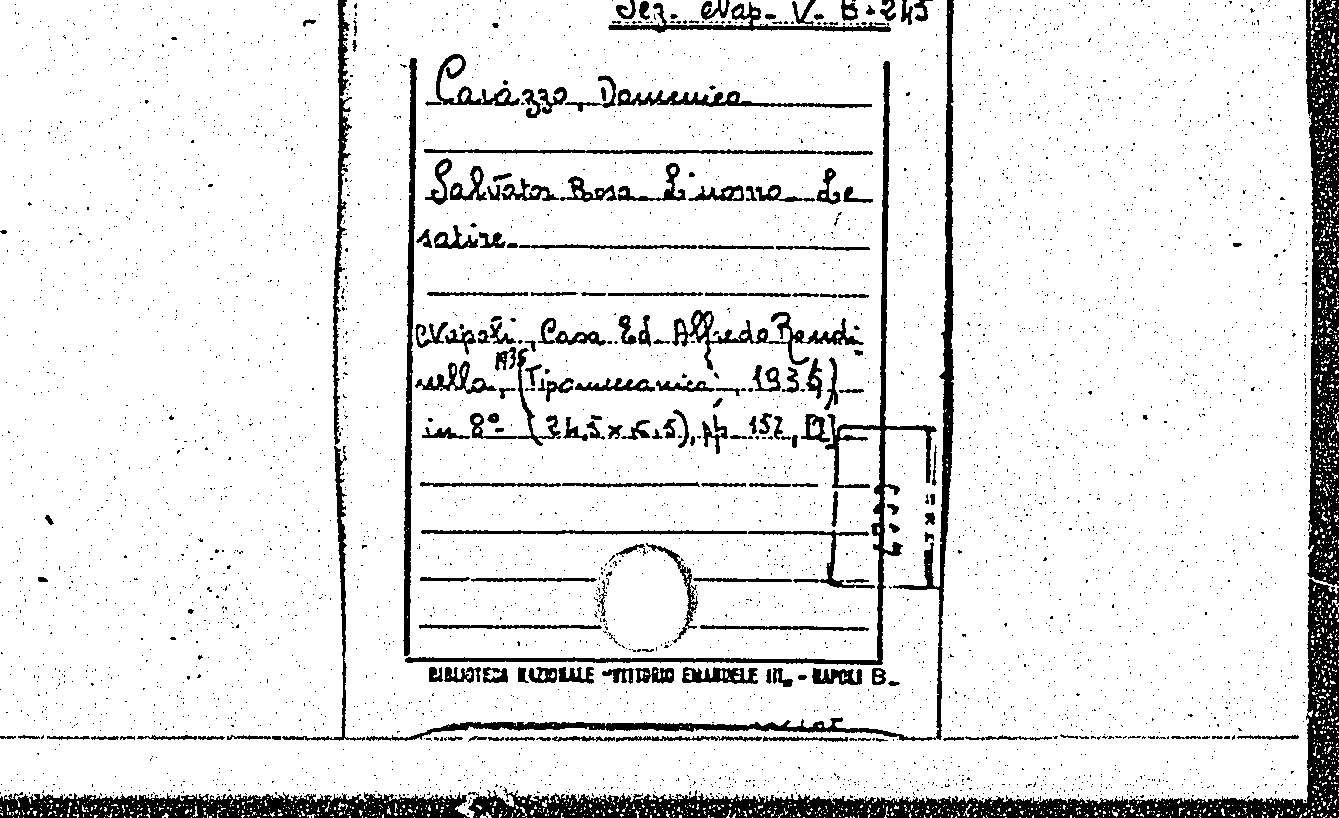 Sez. Nap. V. B. 245
Cavazzo, Domenico
Salvator Rosa. L'uomo. Le
satire.
Napoli, Casa Ed. Alfredo Rondi-
nella, 1935 (Tipomeccanica, 1935)
in 8° (24,5 x 15.5), pp. 152, [2]
BIBLIOTECA NAZIONALE "VITTORIO EMANUELE III" - NAPOLI B.